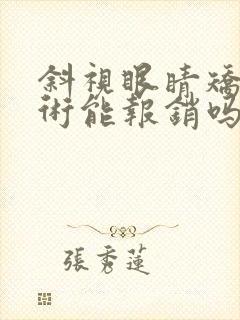 斜視眼睛矯
術能報銷吗
張秀蓮